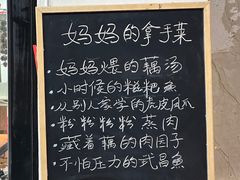 妈妈的拿手菜
·妈妈煨的藕汤
·小时候的糍粑鱼
·从别人家学的虎皮凤爪
·粉粉粉粉蒸肉
·藏着藕的肉园子
·不怕压力的武昌鱼